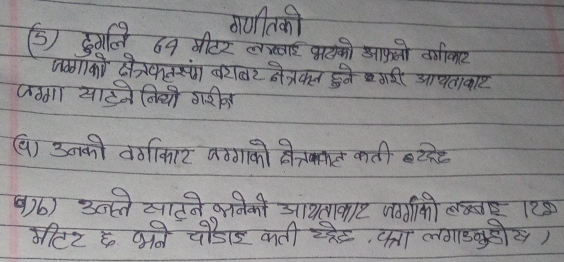 गणीतको
(5) दुर्गाले 64 मीटर लम्बाइ भएको आफ्नो वर्गाकार
जग्गाको क्षेत्रफलसंग बराबर क्षेत्रफल हुने गरी आयताकार
जग्गा साट्ने निर्णय गरीन
(a) उनको वर्गाकार जग्गाको क्षेत्रफल कती
b) उनले साट्ने भनेको आयताकार जग्गाको लम्बाइ 128
मीटर छ भने चौडाइ कती पत्ता लगाउनुहोस )